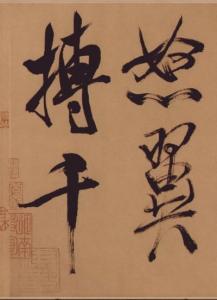 怒翼
搏千